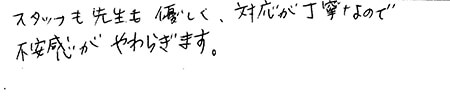 スタッフも先生も優しく、対応が丁寧なので
不安感がやわらぎます。